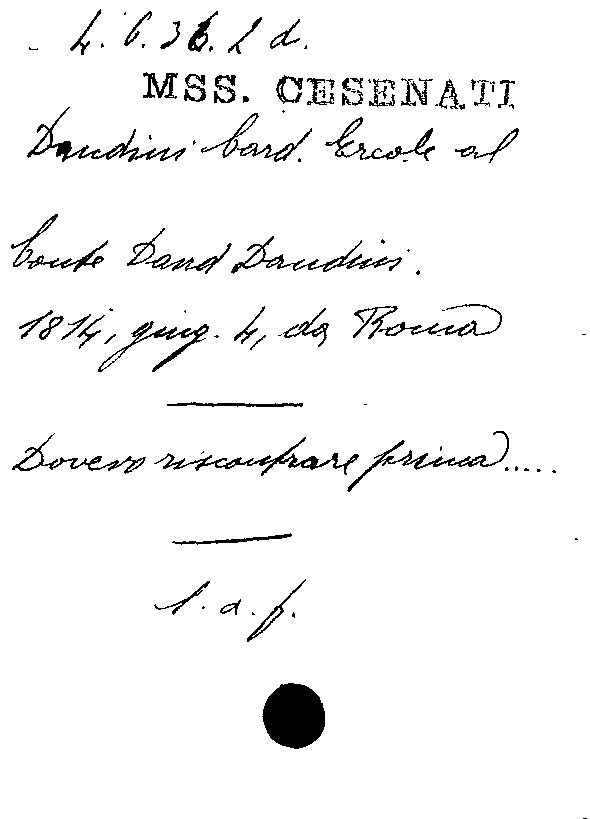 4. 6. 36. 2 d.
MSS. CESENATI
Dandini Card. Ercole al
Conte David Dandini.
1814, giug. 4, da Roma
Dovevo riscontrare prima.....
l. a. f.